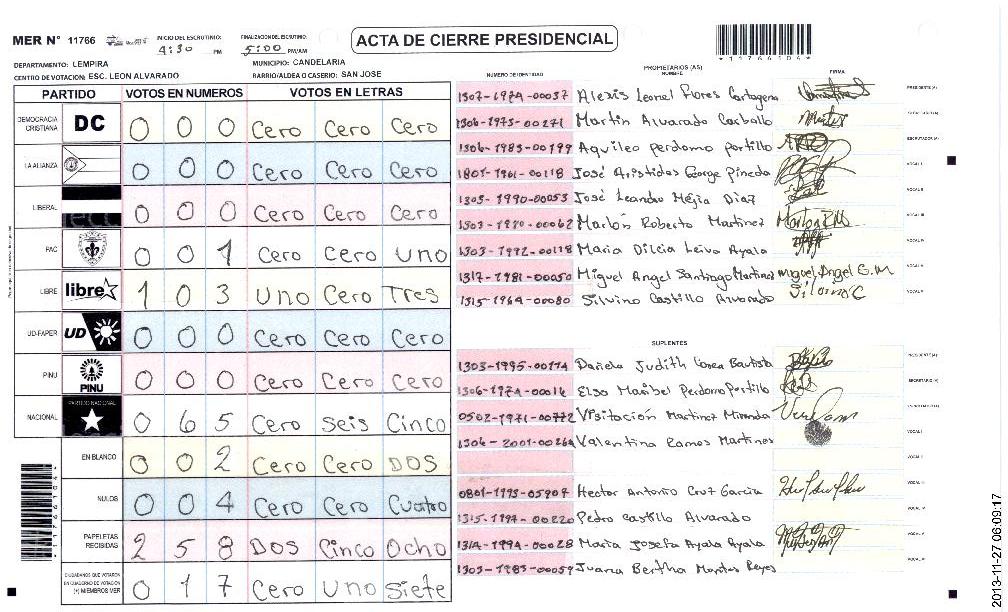 MER N° 11766
INICIO DEL ESCRUTINIO: 4:30 PM
FINALIZACION DEL ESCRUTINIO: 5:00 PM/AM
ACTA DE CIERRE PRESIDENCIAL
DEPARTAMENTO: LEMPIRA
MUNICIPIO: CANDELARIA
CENTRO DE VOTACION: ESC. LEON ALVARADO
BARRIO/ALDEA O CASERIO: SAN JOSE
PARTIDO VOTOS EN NUMEROS VOTOS EN LETRAS
DEMOCRACIA CRISTIANA DC 0 0 0 Cero Cero Cero
LA ALIANZA 0 0 0 Cero Cero Cero
LIBERAL 0 0 0 Cero Cero Cero
PAC 0 0 1 Cero Cero Uno
LIBRE libre 1 0 3 Uno Cero Tres
UD-FAPER UD 0 0 0 Cero Cero Cero
PINU PINU 0 0 0 Cero Cero Cero
NACIONAL PARTIDO NACIONAL 0 6 5 Cero Seis Cinco
EN BLANCO 0 0 2 Cero Cero DOS
NULOS 0 0 4 Cero Cero Cuatro
PAPELETAS RECIBIDAS 2 5 8 DOS Cinco Ocho
CIUDADANOS QUE VOTARON EN CUADERNO DE VOTACION (+) MIEMBROS MER 0 1 7 Cero Uno Siete
NUMERO DE IDENTIDAD PROPIETARIOS (AS) NOMBRE FIRMA
1307-1974-00037 Alexis Leonel Flores Cartagena PRESIDENTE (A)
1306-1975-00271 Martin Alvarado Carballo
1306-1983-00199 Aquileo perdomo portillo ESCRUTADOR (A)
1801-1961-00118 José Aristides George Pineda VOCAL I
1303-1990-00053 José Leandro Mejia Diaz VOCAL II
1303-1980-00062 Marlon Roberto Martinez VOCAL III
1303-1992-00118 Maria Dilcia Leiva Ayala VOCAL IV
1317-1981-00050 Miguel Angel Santiago Martinez Miguel Angel S.M VOCAL V
1315-1964-00080 Silvino Castillo Alvarado
SUPLENTES
1303-1995-00174 Judith Bautista PRESIDENTE (A)
Elsa Maribel Perdomo Portillo SECRETARIO (A)
0502-1971-00772 Visitación Martinez Miranda
Valentina Ramos Martinez VOCAL I
VOCAL II
0801-1993-05907 Hector Antonio Cruz Garcia VOCAL III
1315-1994-00220 Pedro Castillo Alvarado VOCAL IV
1314-1994-00028 Maria Josefa Ayala Ayala VOCAL V
1303-1983-00059 Juana Bertha Reyes
2013-11-27 06:09:17